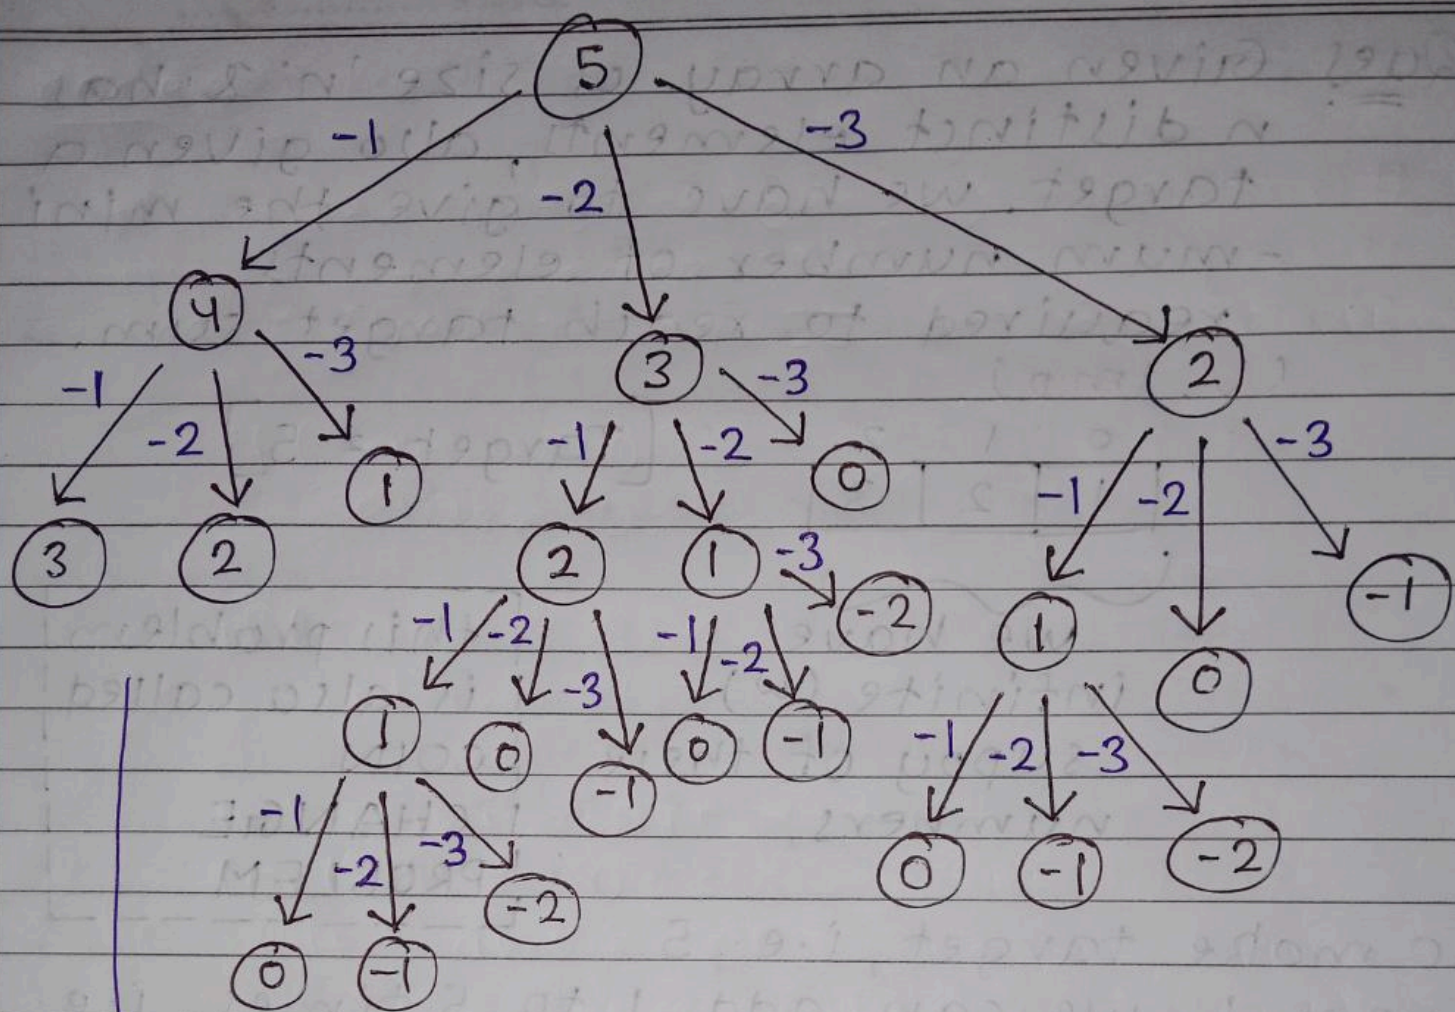 5
-1 -2 -3
4 3 2
-1 -2 -3 -1 -2 -3 -1 -2 -3
3 2 1 2 1 0 1 0 -1
-1 -2 -3 -1 -2 -3 -1 -2 -3
1 0 -1 0 -1 -2 0 -1 -2
-1 -2 -3
0 -1 -2